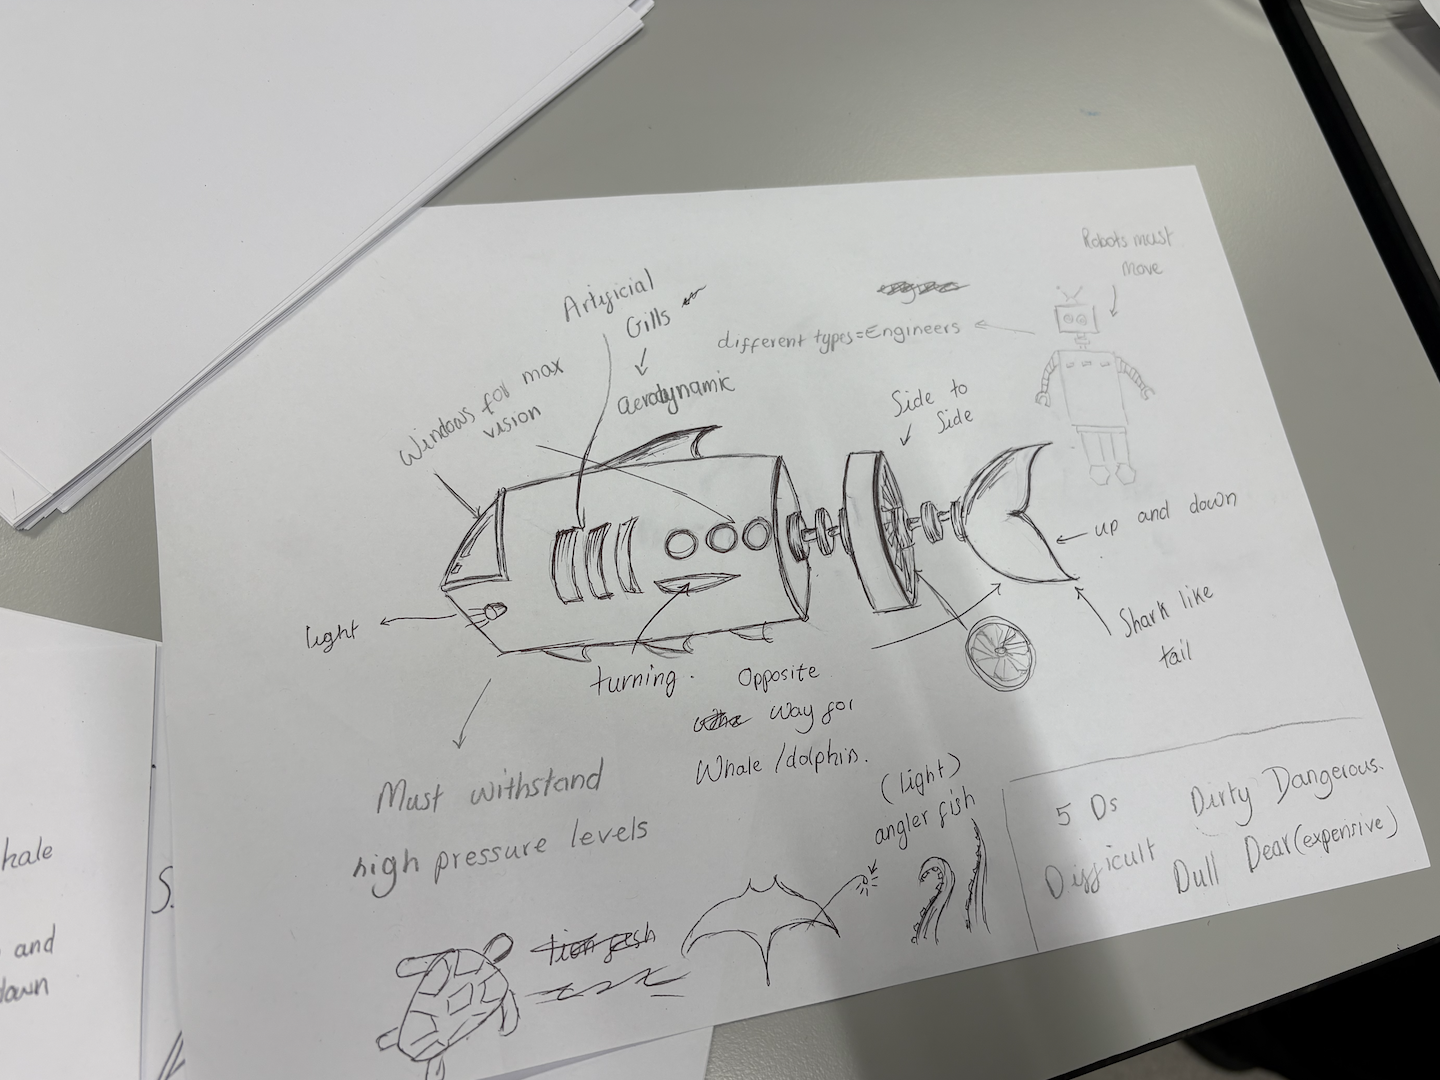 Robots must
move
different types=Engineers
Artificial
Gills
aerodynamic
Windows for max
vision
Side to
Side
up and down
Shark like
tail
light
turning.
Opposite
Way for
Whale /dolphin.
Must withstand
high pressure levels
(light)
angler fish
5 Ds
Dirty Dangerous.
Difficult Dull Dear(expensive)
hale
and
down
S.